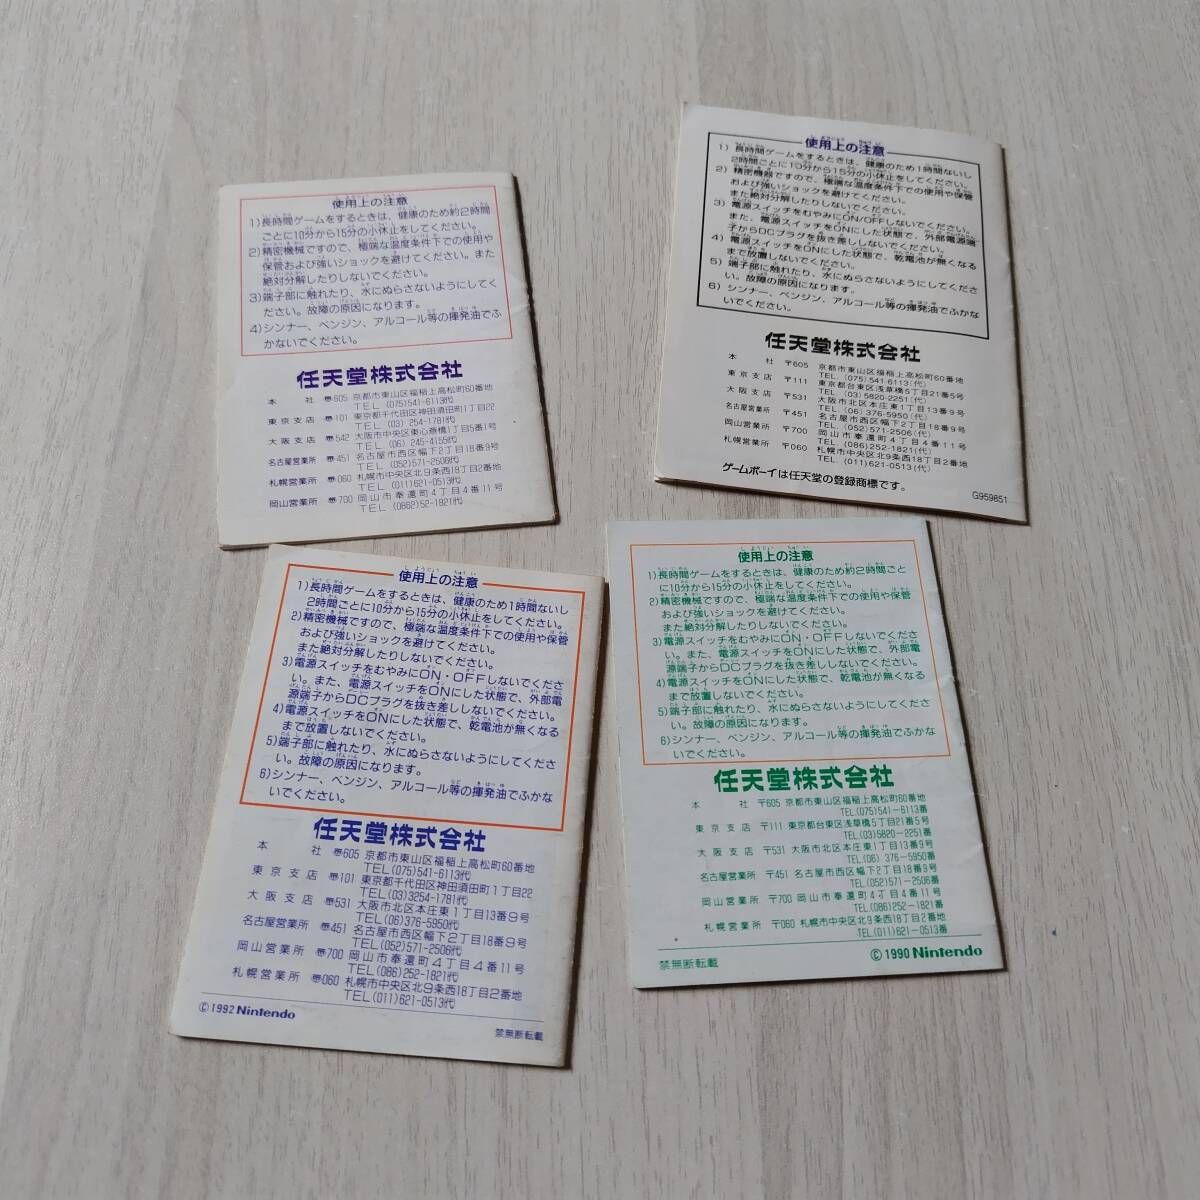 使用上の注意
1)長時間ゲームをするときは、健康のため約2時間
ごとに10分から15分の小休止をしてください。
2)精密機械ですので、極端な温度条件下での使用や
保管および強いショックを避けてください。また
絶対分解したりしないでください。
3)端子部に触れたり、水にぬらさないようにしてく
ださい。故障の原因になります。
4)シンナー、ベンジン、アルコール等の揮発油でふ
かないでください。
任天堂株式会社
本 社 〒605 京都市東山区福稲上高松町60番地
TEL (075)541-6113代
東京支店 〒101 東京都千代田区神田須田町1丁目22
TEL (03) 254-1781代
大阪支店 〒542 大阪市中央区東心斎橋1丁目5番1号
TEL (06) 245-4155代
名古屋営業所 〒451 名古屋市西区幅下2丁目18番9号
TEL (052)571-2506代
札幌営業所 〒060 札幌市中央区北9条西18丁目2番地
TEL (011)621-0513代
岡山営業所 〒700 岡山市奉還町4丁目4番11号
TEL (0862)52-1821代
使用上の注意
1) 長時間ゲームをするときは、健康のため1時間ないし
2時間ごとに10分から15分の小休止をしてください。
2) 精密機器ですので、極端な温度条件下での使用や保管
および強いショックを避けてください。
また絶対分解したりしないでください。
3) 電源スイッチをむやみにON/OFFしないでください。
また、電源スイッチをONにした状態で、外部電源端
子からDCプラグを抜き差ししないでください。
4) 電源スイッチをONにした状態で、乾電池が無くなる
まで放置しないでください。
5) 端子部に触れたり、水にぬらさないようにしてくださ
い。故障の原因になります。
6) シンナー、ベンジン、アルコール等の揮発油でふかな
いでください。
任天堂株式会社
本 社 〒605 京都市東山区福稲上高松町60番地
TEL. (075) 541-6113(代)
東京支店 〒111 東京都台東区浅草橋5丁目21番5号
TEL. (03) 5820-2251(代)
大阪支店 〒531 大阪市北区本庄東1丁目13番9号
TEL. (06) 376-5950(代)
名古屋営業所 〒451 名古屋市西区幅下2丁目18番9号
TEL. (052)571-2506(代)
岡山営業所 〒700 岡山市奉還町4丁目4番11号
TEL. (086)252-1821(代)
札幌営業所 〒060 札幌市中央区北9条西18丁目2番地
TEL. (011)621-0513(代)
ゲームボーイは任天堂の登録商標です。
G959851
使用上の注意
1)長時間ゲームをするときは、健康のため1時間ないし
2時間ごとに10分から15分の小休止をしてください。
2)精密機械ですので、極端な温度条件下での使用や保管
および強いショックを避けてください。
また絶対分解したりしないでください。
3)電源スイッチをむやみにON・OFFしないでくださ
い。また、電源スイッチをONにした状態で、外部電
源端子からDCプラグを抜き差ししないでください。
4)電源スイッチをONにした状態で、乾電池が無くなる
まで放置しないでください。
5)端子部に触れたり、水にぬらさないようにしてくださ
い。故障の原因になります。
6)シンナー、ベンジン、アルコール等の揮発油でふかな
いでください。
任天堂株式会社
本 社 〒605 京都市東山区福稲上高松町60番地
TEL(075)541-6113代
東京支店 〒101 東京都千代田区神田須田町1丁目22
TEL(03)3254-1781代
大阪支店 〒531 大阪市北区本庄東1丁目13番9号
TEL(06)376-5950代
名古屋営業所 〒451 名古屋市西区幅下2丁目18番9号
TEL(052)571-2506代
岡山営業所 〒700 岡山市奉還町4丁目4番11号
TEL(086)252-1821代
札幌営業所 〒060 札幌市中央区北9条西18丁目2番地
TEL(011)621-0513代
© 1992 Nintendo
禁無断転載
使用上の注意
1)長時間ゲームをするときは、健康のため約2時間ごと
に10分から15分の小休止をしてください。
2)精密機械ですので、極端な温度条件下での使用や保管
および強いショックを避けてください。
また絶対分解したりしないでください。
3)電源スイッチをむやみにON・OFFしないでくださ
い。また、電源スイッチをONにした状態で、外部電
源端子からDCプラグを抜き差ししないでください。
4)電源スイッチをONにした状態で、乾電池が無くなる
まで放置しないでください。
5)端子部に触れたり、水にぬらさないようにしてくださ
い。故障の原因になります。
6)シンナー、ベンジン、アルコール等の揮発油でふかな
いでください。
任天堂株式会社
本 社 〒605 京都市東山区福稲上高松町60番地
TEL(075)541-6113番
東京支店 〒111 東京都台東区浅草橋5丁目21番5号
TEL(03)5820-2251番
大阪支店 〒531 大阪市北区本庄東1丁目13番9号
TEL(06) 376-5950番
名古屋営業所 〒451 名古屋市西区幅下2丁目18番9号
TEL(052)571-2506番
岡山営業所 〒700 岡山市奉還町4丁目4番11号
TEL(086)252-1821番
札幌営業所 〒060 札幌市中央区北9条西18丁目2番地
TEL(011)621-0513番
禁無断転載
© 1990 Nintendo